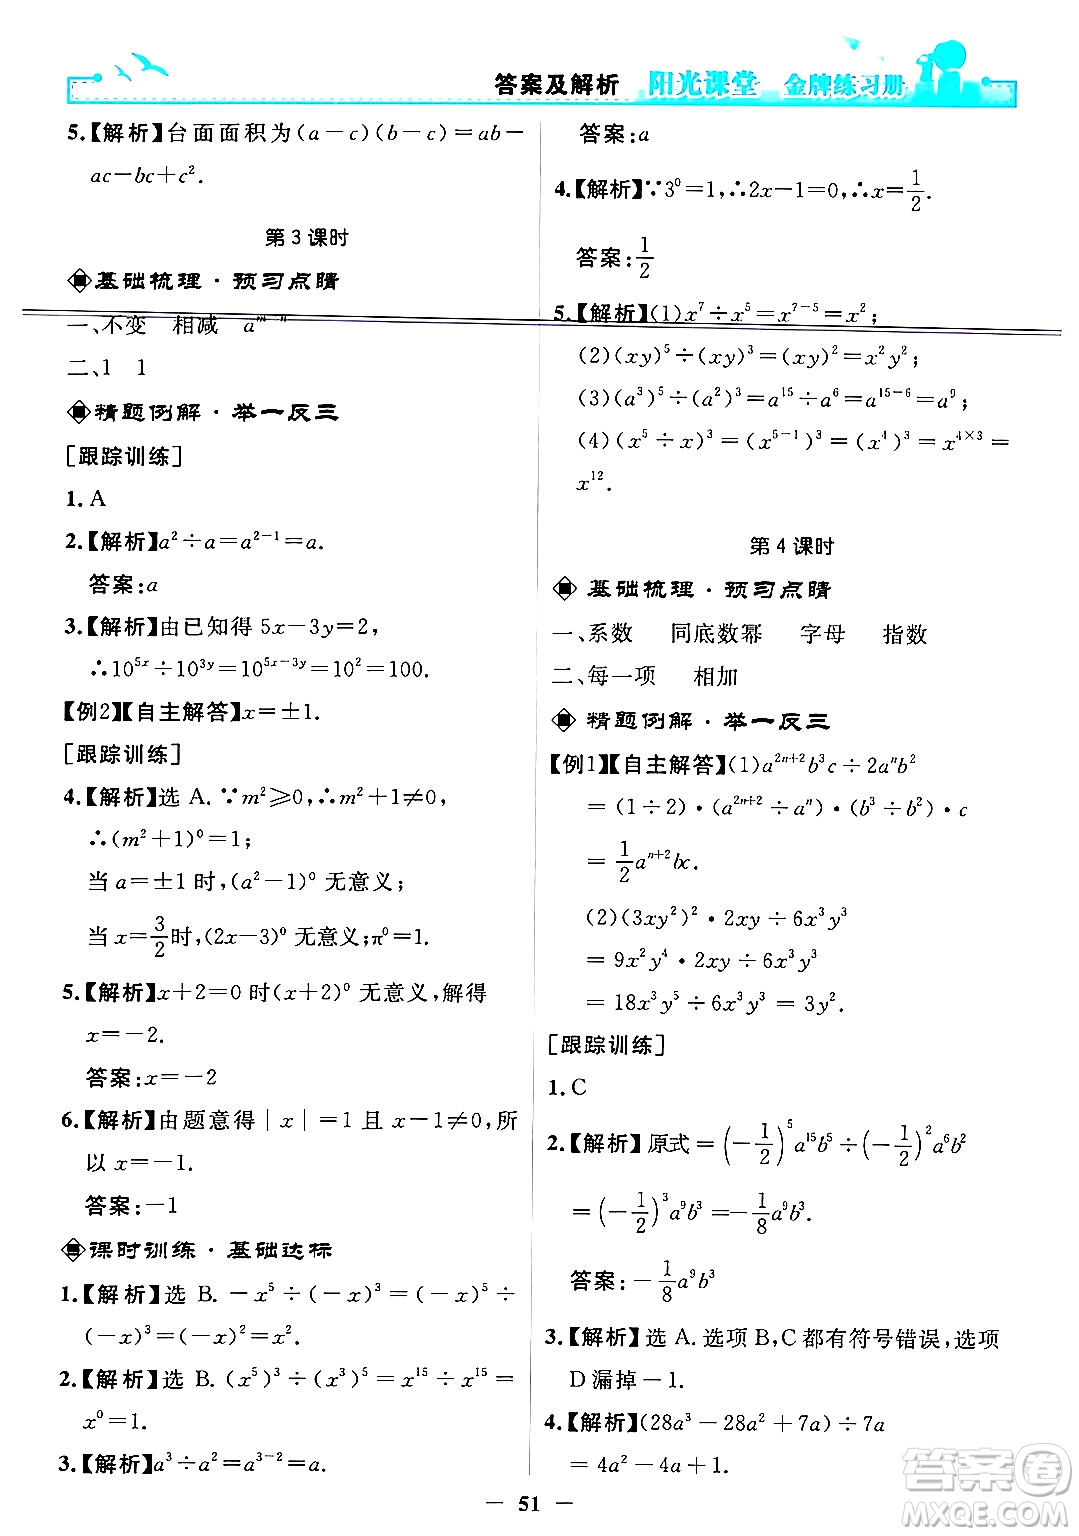 答案及解析 阳光课堂 金牌练习册
5.【解析】台面面积为(a－c)(b－c)＝ab－
ac－bc＋c².
第 3 课时
基础梳理·预习点睛
一、不变 相减 aᵐ⁻ⁿ
二、1 1
精题例解·举一反三
[跟踪训练]
1. A
2.【解析】a²÷a＝a²⁻¹＝a.
答案:a
3.【解析】由已知得 5x－3y＝2,
∴10⁵ˣ÷10³ʸ＝10⁵ˣ⁻³ʸ＝10²＝100.
【例2】【自主解答】x＝±1.
[跟踪训练]
4.【解析】选 A.∵m²≥0,∴m²＋1≠0,
∴(m²＋1)⁰＝1;
当 a＝±1 时,(a²－1)⁰ 无意义;
当 x＝3/2时,(2x－3)⁰ 无意义;π⁰＝1.
5.【解析】x＋2＝0 时(x＋2)⁰ 无意义,解得
x＝－2.
答案:x＝－2
6.【解析】由题意得|x|＝1 且 x－1≠0,所
以 x＝－1.
答案:－1
课时训练·基础达标
1.【解析】选 B. －x⁵÷(－x)³＝(－x)⁵÷
(－x)³＝(－x)²＝x².
2.【解析】选 B. (x⁵)³÷(x³)⁵＝x¹⁵÷x¹⁵＝
x⁰＝1.
3.【解析】a³÷a²＝a³⁻²＝a.
答案:a
4.【解析】∵3⁰＝1,∴2x－1＝0,∴x＝1/2.
答案:1/2
5.【解析】(1)x⁷÷x⁵＝x⁷⁻⁵＝x²;
(2)(xy)⁵÷(xy)³＝(xy)²＝x²y²;
(3)(a³)⁵÷(a²)³＝a¹⁵÷a⁶＝a¹⁵⁻⁶＝a⁹;
(4)(x⁵÷x)³＝(x⁵⁻¹)³＝(x⁴)³＝x⁴ˣ³＝
x¹².
第 4 课时
基础梳理·预习点睛
一、系数 同底数幂 字母 指数
二、每一项 相加
精题例解·举一反三
【例1】【自主解答】(1)a²ⁿ⁺²b³c÷2aⁿb²
＝(1÷2)·(a²ⁿ⁺²÷aⁿ)·(b³÷b²)·c
＝1/2aⁿ⁺²bc.
(2)(3xy²)²·2xy÷6x³y³
＝9x²y⁴·2xy÷6x³y³
＝18x³y⁵÷6x³y³＝3y².
[跟踪训练]
1. C
2.【解析】原式＝(－1/2)⁵a¹⁵b⁵÷(－1/2)²a⁶b²
＝(－1/2)³a⁹b³＝－1/8a⁹b³.
答案:－1/8a⁹b³
3.【解析】选 A. 选项 B,C 都有符号错误,选项
D 漏掉－1.
4.【解析】(28a³－28a²＋7a)÷7a
＝4a²－4a＋1.
— 51 —
答案圈
MXQE.COM